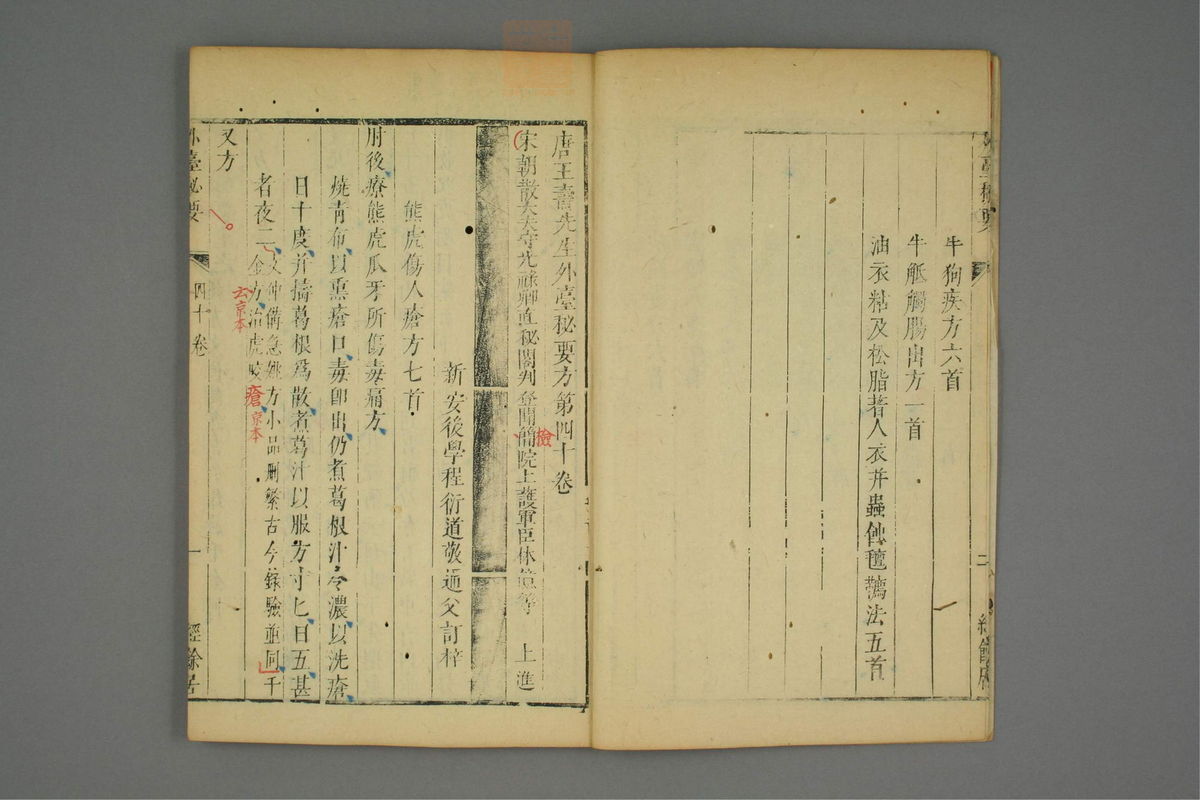 外臺秘要
二
經餘居
牛狗疾方六首
牛觝觸腸出方一首
油衣粘及松脂著人衣并蟲蝕氊鞯法五首
唐王燾先生外臺秘要方第四十卷
宋朝散大夫守光祿卿直秘閣判登聞簡院上護軍臣林億等 上進
檢
新安後學程衍道敬通父訂梓
熊虎傷人瘡方七首
肘後療熊虎爪牙所傷毒痛方
燒青布以熏瘡口毒卽出仍煮葛根汁令濃以洗瘡
日十度并擣葛根爲散煮葛汁以服方寸匕日五甚
者夜二文仲備急姚方小品刪繁古今錄驗並同千
金方治虎咬瘡
云京本
瘡京本
又方
外臺秘要
四十卷
一
經餘居